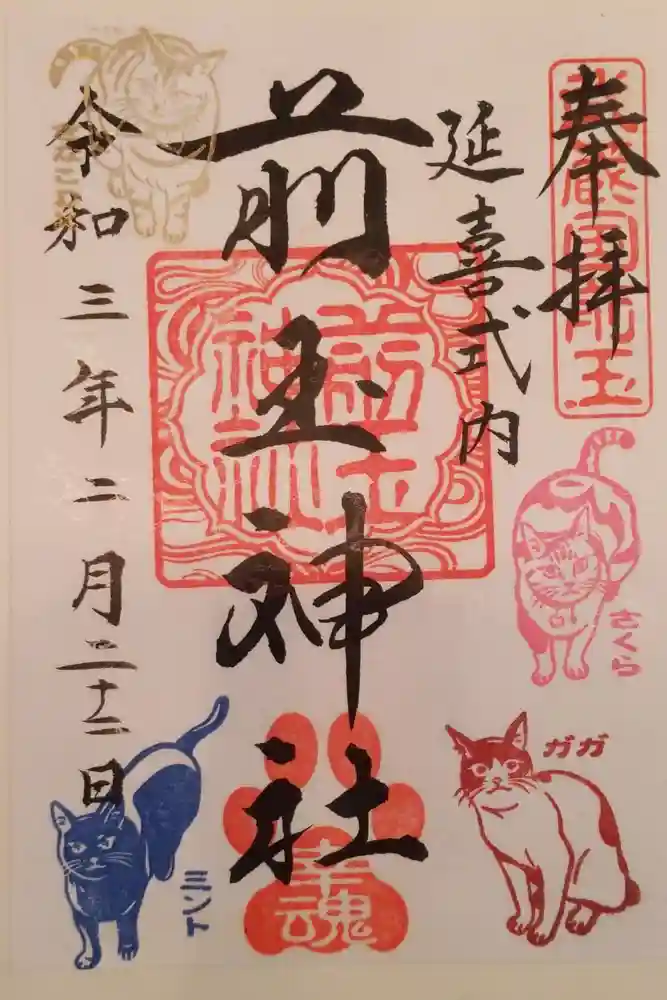 奉拝
武蔵國埼玉
延喜式内
前玉神社
前玉
神社
幸魂
令和三年二月二十二日
きなこ
さくら
ガガ
ミント